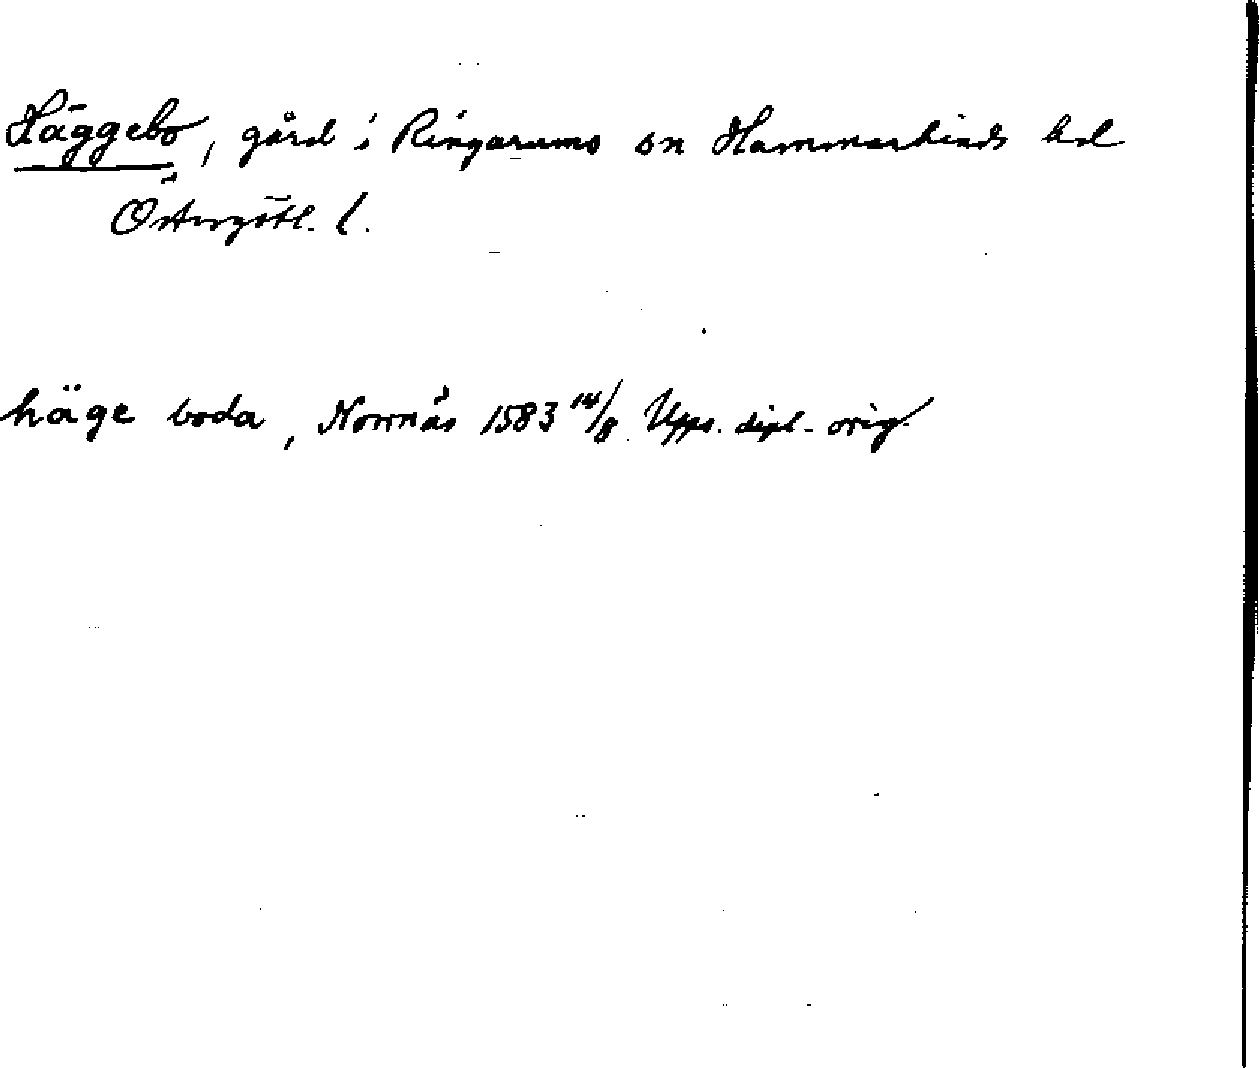 Häggebo, gård i Ringarums sn Hammarkinds hd
Östergötl. l.
häge boda, Norrnäs 1583 14/8 Upps. dipl. orig.